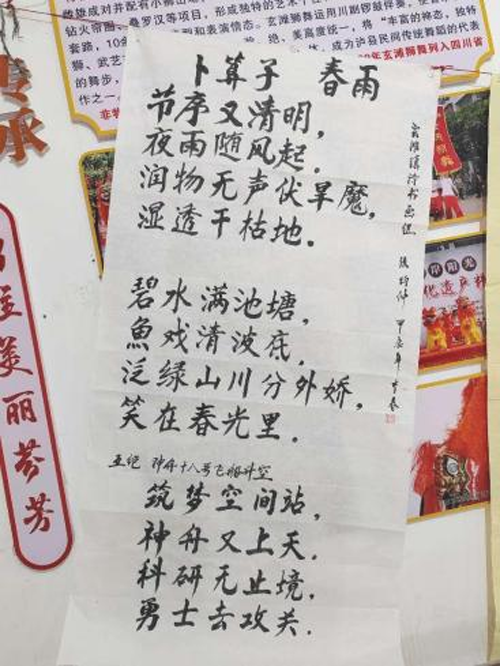 雄成对并配有小狮
钻火帝圈、叠罗汉等项目，形成独特的艺术
卜算子　春雨
节序又清明，
夜雨随风起．
润物无声伏旱魔，
湿透干枯地．
碧水满池塘，
鱼戏清波底，
泛绿山川分外娇，
笑在春光里．
五绝 神舟十八号飞船升空
筑梦空间站，
神舟又上天．
科研无止境，
勇士去攻关．
玄滩镇诗书画组
甲辰年
型和表情动态。玄滩狮舞运用川剧锣鼓伴奏，
绝、美高度统一，将"丰富的神态，独特
成为泸县民间传统舞蹈的代表
年玄滩狮舞列入四川省
套路，10余
狮、武艺
的舞步，
作之一。
非物
承
美
丽
芬
芳